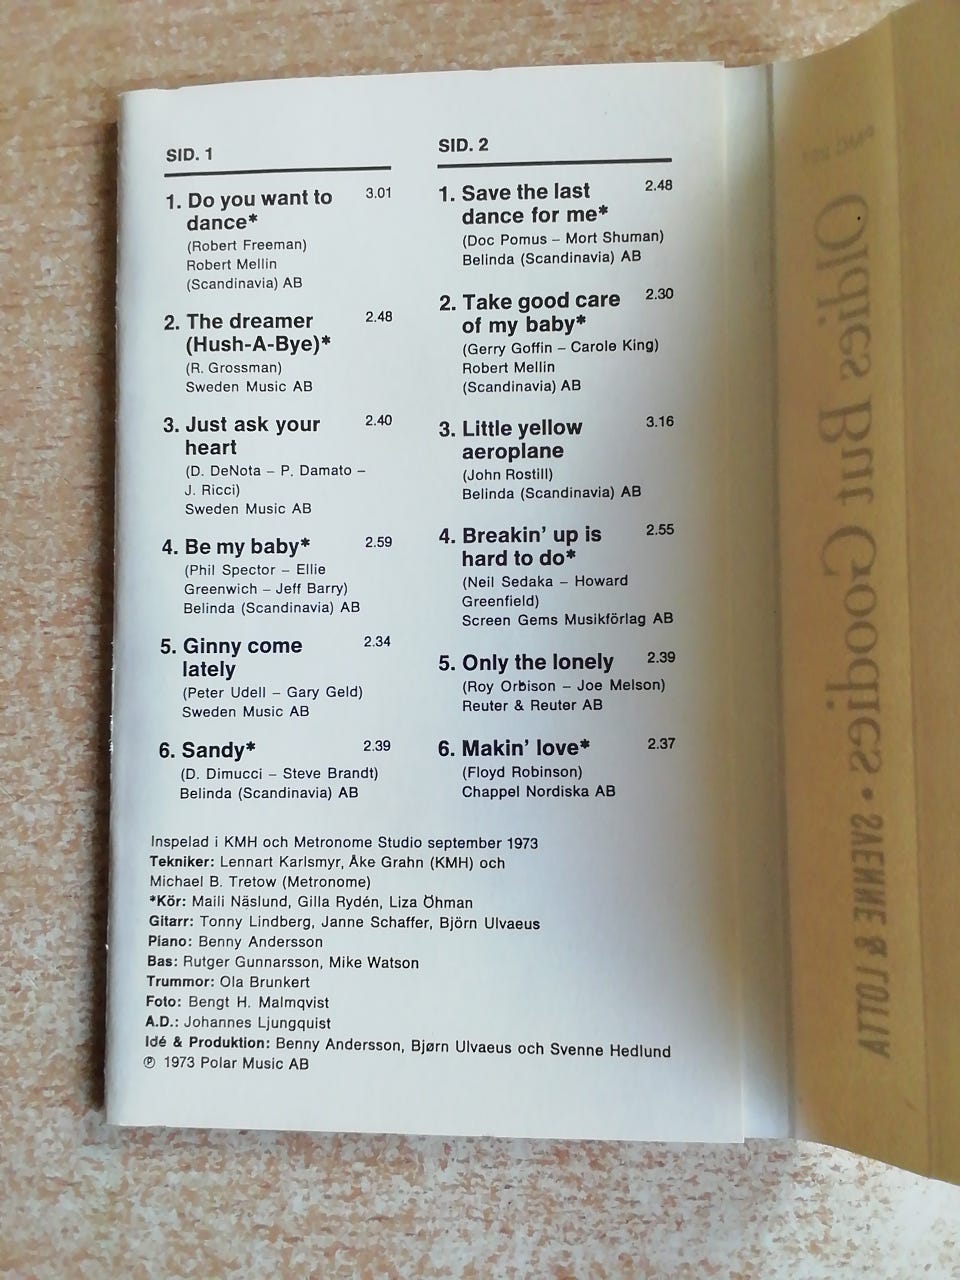 SID. 1
1. Do you want to 3.01
dance*
(Robert Freeman)
Robert Mellin
(Scandinavia) AB
2. The dreamer 2.48
(Hush-A-Bye)*
(R. Grossman)
Sweden Music AB
3. Just ask your 2.40
heart
(D. DeNota – P. Damato –
J. Ricci)
Sweden Music AB
4. Be my baby* 2.59
(Phil Spector – Ellie
Greenwich – Jeff Barry)
Belinda (Scandinavia) AB
5. Ginny come 2.34
lately
(Peter Udell – Gary Geld)
Sweden Music AB
6. Sandy* 2.39
(D. Dimucci – Steve Brandt)
Belinda (Scandinavia) AB
SID. 2
1. Save the last 2.48
dance for me*
(Doc Pomus – Mort Shuman)
Belinda (Scandinavia) AB
2. Take good care 2.30
of my baby*
(Gerry Goffin – Carole King)
Robert Mellin
(Scandinavia) AB
3. Little yellow 3.16
aeroplane
(John Rostill)
Belinda (Scandinavia) AB
4. Breakin' up is 2.55
hard to do*
(Neil Sedaka – Howard
Greenfield)
Screen Gems Musikförlag AB
5. Only the lonely 2.39
(Roy Orbison – Joe Melson)
Reuter & Reuter AB
6. Makin' love* 2.37
(Floyd Robinson)
Chappel Nordiska AB
Inspelad i KMH och Metronome Studio september 1973
Tekniker: Lennart Karlsmyr, Åke Grahn (KMH) och
Michael B. Tretow (Metronome)
*Kör: Maili Näslund, Gilla Rydén, Liza Öhman
Gitarr: Tonny Lindberg, Janne Schaffer, Björn Ulvaeus
Piano: Benny Andersson
Bas: Rutger Gunnarsson, Mike Watson
Trummor: Ola Brunkert
Foto: Bengt H. Malmqvist
A.D.: Johannes Ljungquist
Idé & Produktion: Benny Andersson, Bjørn Ulvaeus och Svenne Hedlund
℗ 1973 Polar Music AB
Oldies But Goodies • SVENNE & LOTTA